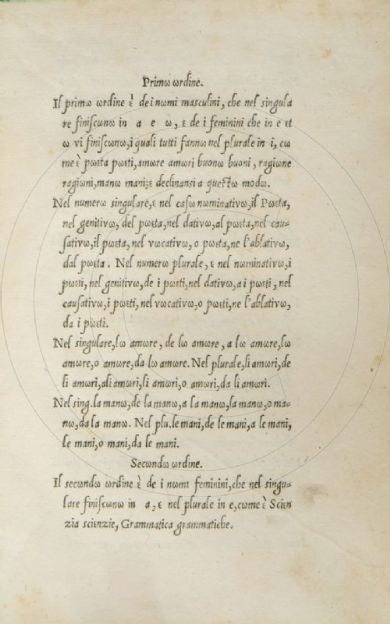 Primω ωrdine.
Il primω ωrdine ὲ de i nωmi masculini, che nel singula
re finiscωnω in a e ω, ε de i feminini che in e et
ω vi finiscωnω, i quali tutti fannω nel plurale in i, cω
me ὲ pωεta pωεti, amωre amωri buonω buoni, ragiωne
ragiωni, manω mani; ε declinansi a questω mωdω.
Nel numerω singulare, ε nel casω nωminativω, il Pωεta,
nel genitivω, del pωεta, nel dativω, al pωεta, nel cau-
sativω, il pωεta, nel vωcativω, o pωεta, ne l'ablativω,
dal pωεta. Nel numerω plurale, ε nel nωminativω, i
pωεti, nel genitivω, de i pωεti, nel dativω, a i pωεti, nel
causativω, i pωεti, nel vωcativω, o pωεti, ne l'ablativω,
da i pωεti.
Nel singulare, lω amωre, de lω amωre, a lω amωre, lω
amωre, o amωre, da lω amωre. Nel plurale, li amωri, de
li amωri, a li amωri, li amωri, o amωri, da li amωri.
Nel sing. la manω, de la manω, a la manω, la manω, o ma-
nω, da la manω. Nel plu. le mani, de le mani, a le mani,
le mani, o mani, da le mani.
Secωndω ωrdine.
Il secωndω ωrdine ὲ de i nωmi feminini, che nel singu-
lare finiscωnω in a, ε nel plurale in e, cωme ὲ Sciεn
zia sciεnzie, Grammatica grammatiche.